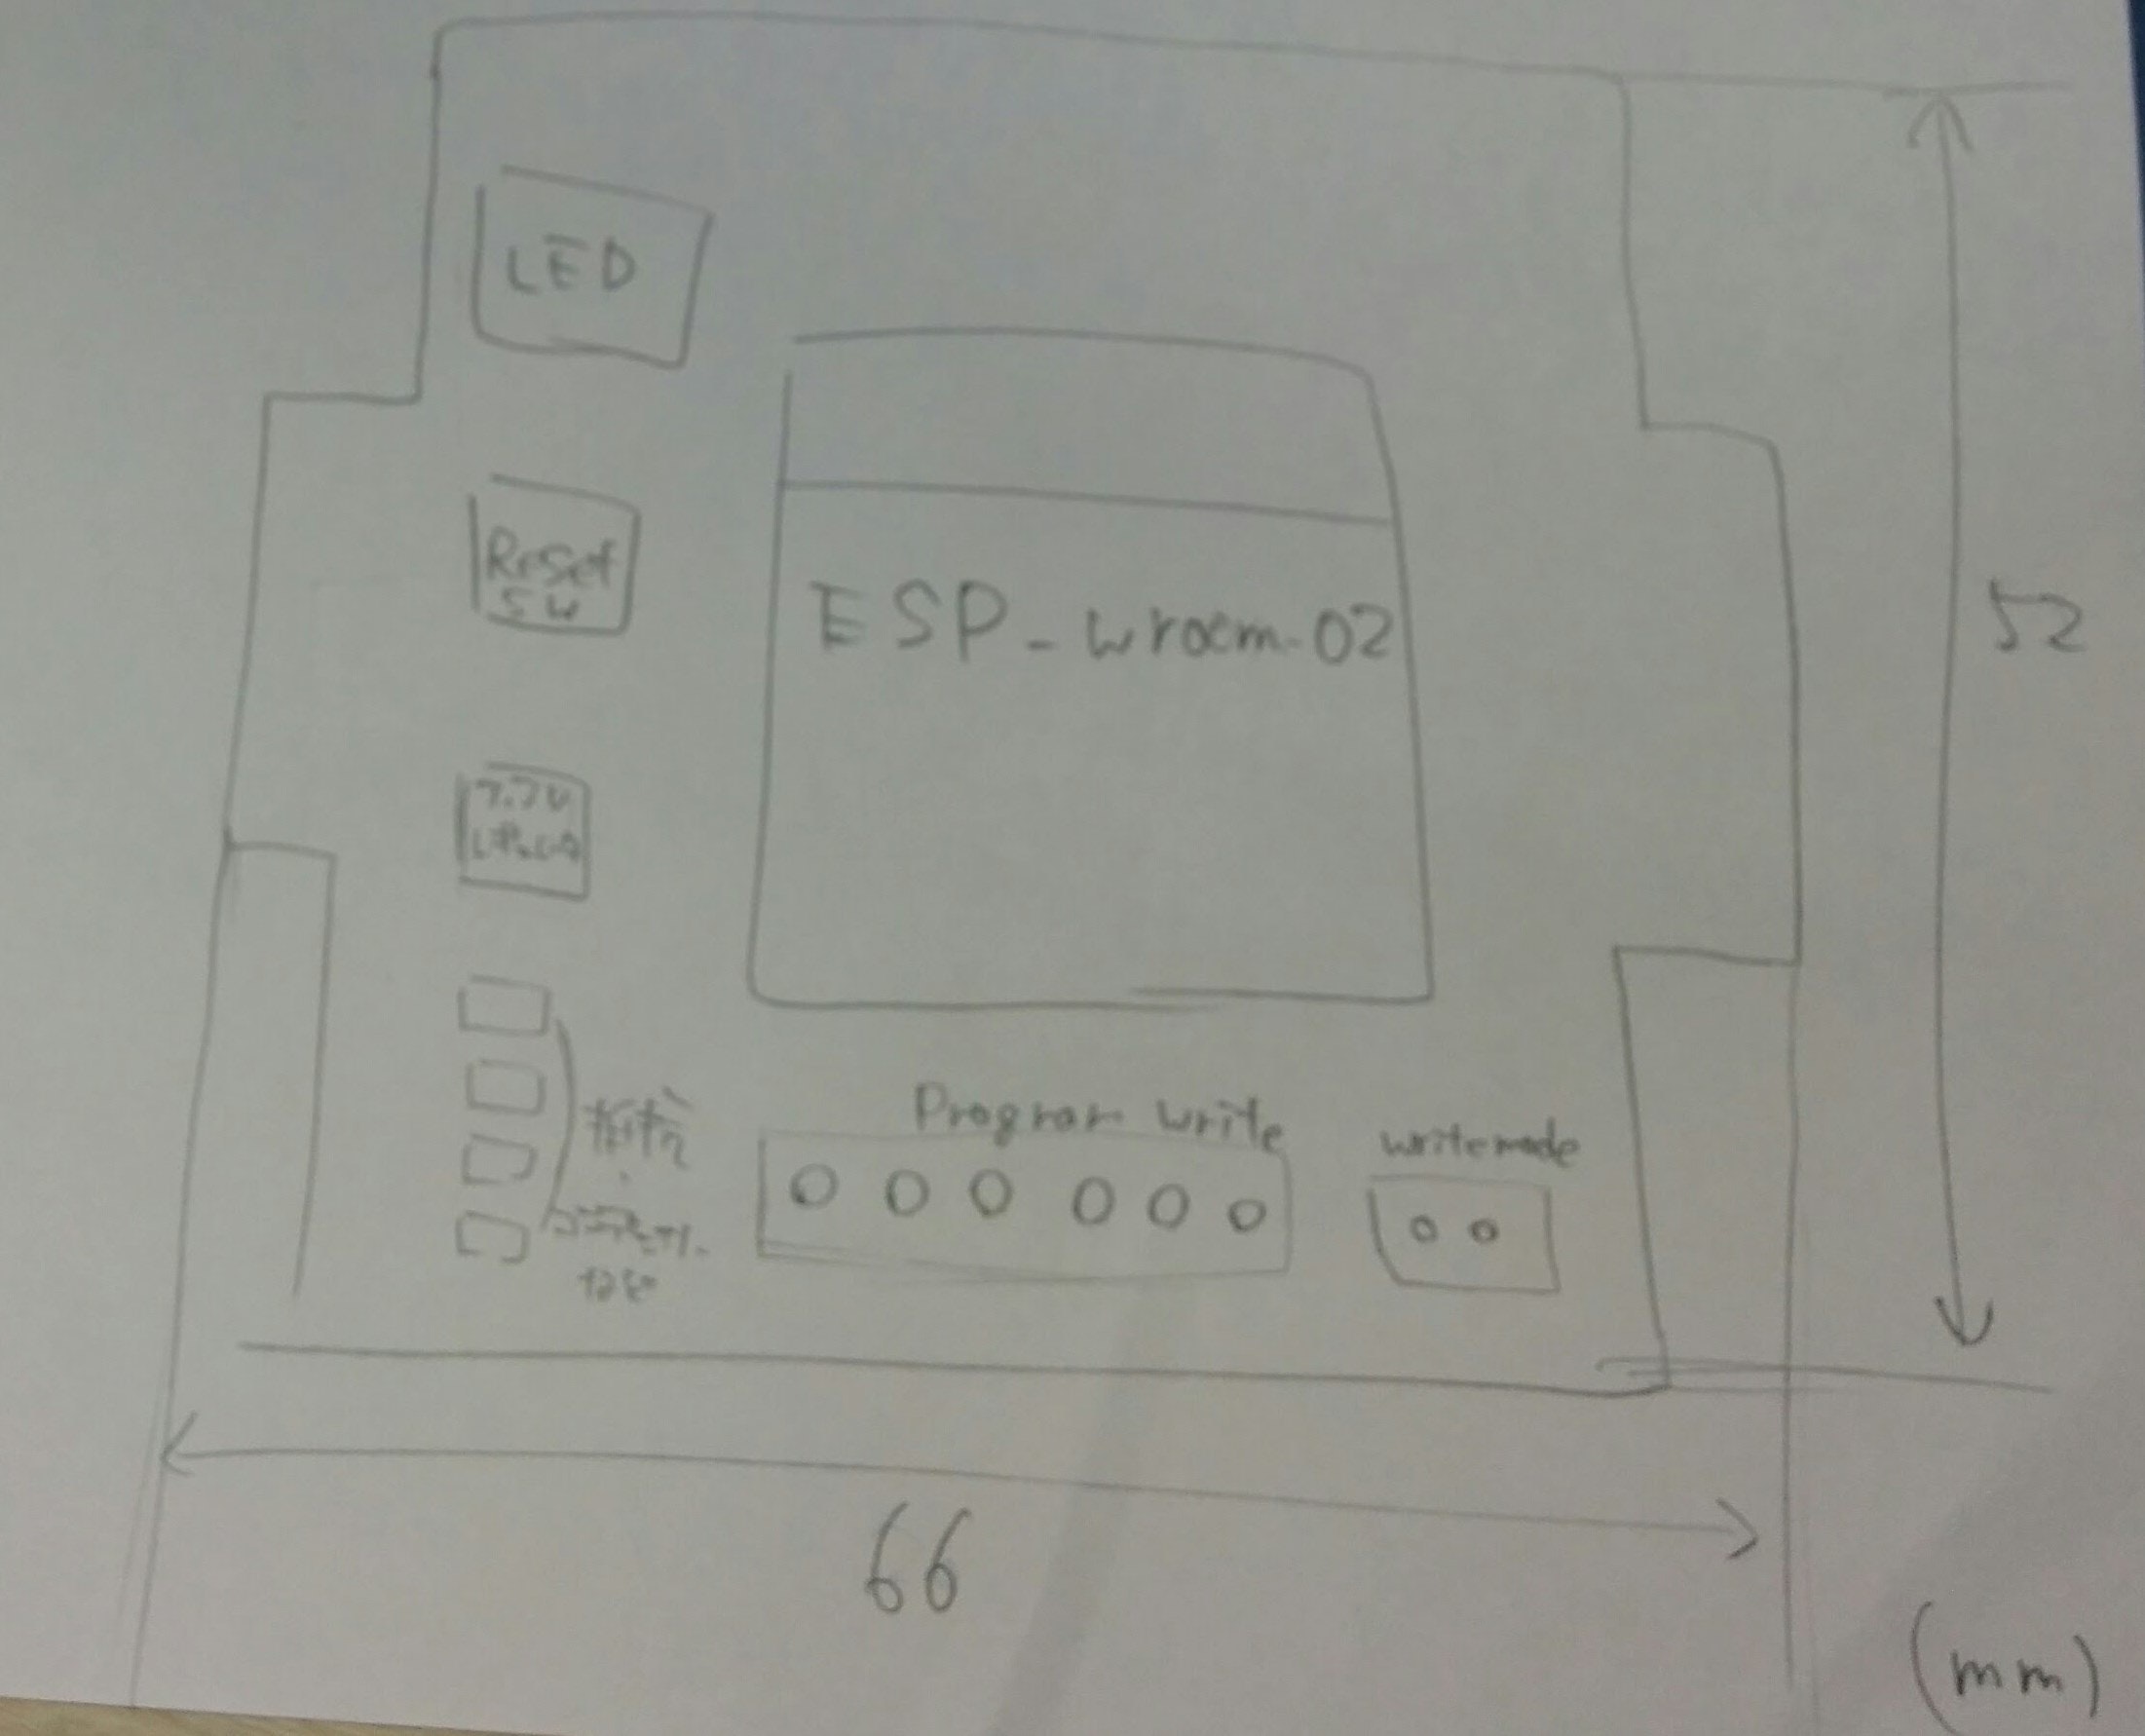 LED
Reset
SW
ESP-wroom-02
52
抵抗
Program write
writemode
66
(mm)